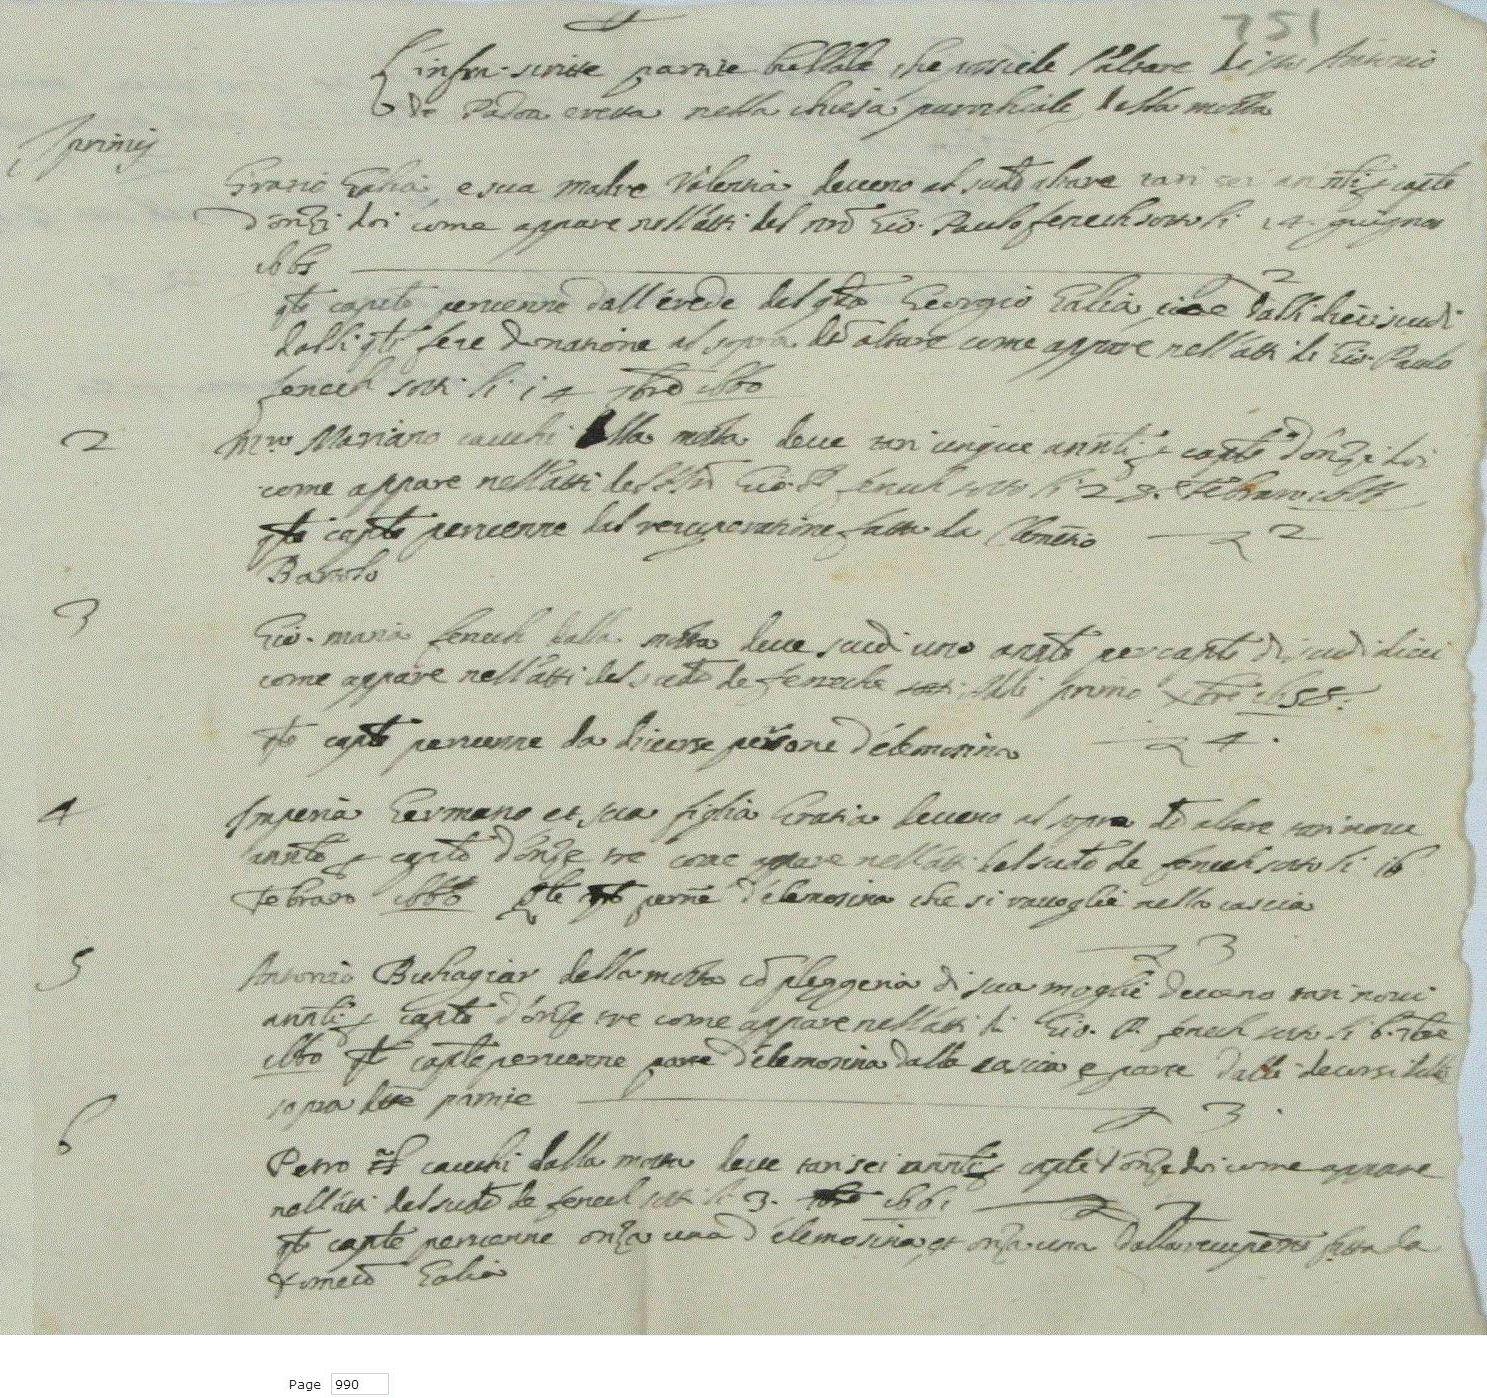 751
L'infra-scritte partite bullali che possiede l'altare di Sto Antonio
de Padoa eretta nella chiesa parochiale della motta
primis
Gratio Galia, e sua madre Valentia deueno al sudto altare tari sei annli p capte
d'onze doi come appare nell'atti del Gio. Paulo fenech sotto li giugno
2
qto capte peruenne dall'erede del qto Georgio Galia cioe dalli dieci scudi
dalli qli fece donatione al sopra dto altare come appare nell'atti de Gio. Paulo
fenech sotto li 14 1660
2
Mro Mariano cauchi della motta deue tari cinque annli p capte d'onze doi
come appare nell'atti del Gio. P. fenech sotto li 28. febraro
qto capte peruenne dal recuperatione fatta da
2
Bartolo
3
Gio. maria fenech della motta deue scudi uno annto per capte di scudi dieci
come appare nell'atti del sudto de fenech sotto li primo 1658.
qto capte peruenne da diuerse persone d'elemosina
4.
4
Imperia Germano et sua figlia Gratia deueno al sopra dto altare tari noue
annto p capto d'onze tre come appare nell'atti del sudto de fenech sotto li 16
febraro 1660 qle peruenne d'elemosina che si raccoglie nella cascia
3
5
Antonio Buhagiar della motta cō pleggeria di sua moglie deueno tari noui
annli p capto d'onze tre come appare nell'atti di Gio. P. fenech sotto li 6. 7bre
1660 qto capte peruenne parte d'elemosina dalla cascia e parte dalli decorsi delle
sopra dte partite
3.
6
Petro cauchi della motta deue tari sei annli p capte d'onze doi come appare
nell'atti del sudto de fenech sotto li 3. 1661
2
qto capte peruenne onza una d'elemosina, et onza una dalla recuperne fatta da
Galia
Page 990